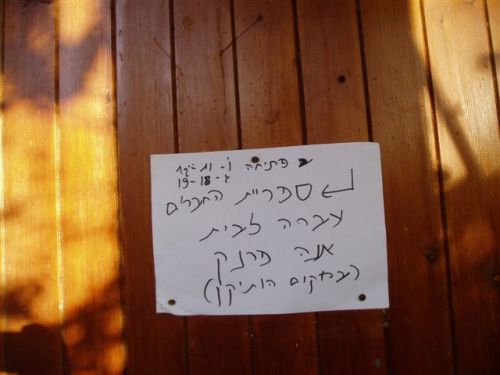 פתיחה
ג - 18-19
ספריית החברים
עברה לבית
אנה פרנק
(במקום הותיקן)